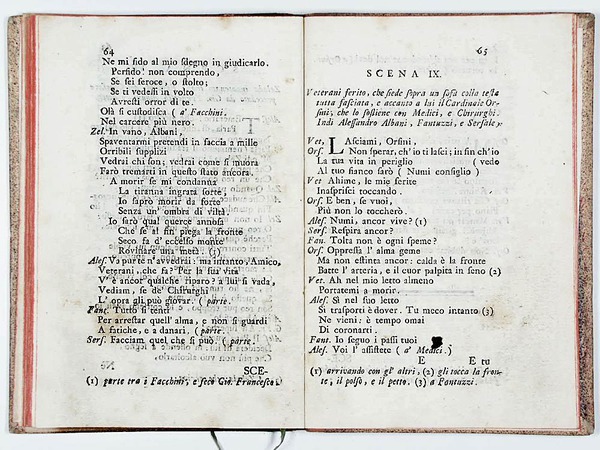 64
Ne mi fido al mio ſdegno in giudicarlo.
Perfido! non comprendo,
Se ſei feroce, o ſtolto;
Se ti vedeſſi in volto
Avreſti orror di te.
Olà ſi cuſtodiſca ( a' Facchini.
Nel carcere più nero.
Zel. In vano, Albani,
Spaventarmi pretendi in faccia a mille
Orribili ſupplizi
Vedrai chi ſon; vedrai come ſi muora
Farò tremarti in queſto ſtato ancora.
A morir ſe mi condanna
La tiranna ingrata ſorte,
Io ſaprò morir da forte
Senza un' ombra di viltà
Io farò qual querce annoſa
Che ſe al fin piega la fronte
Seco fa d' eccelſo monte
Rovinare una metà. (1)
Aleſ. Va pur te n'avvedrai: ma intanto, Amico,
Veterani, che fa? Per la ſua vita
V' è ancor qualche riparo? a lui ſi vada,
Vediam, ſe de' Chirurghi
L' opra gli può giovar. ( parte.
Fant. Tutto ſi tenti
Per arreſtar quell' alma, e non ſi guardi
A fatiche, e a danari. ( parte.
Serſ. Facciam quel che ſi può. ( parte.
SCE-
(1) parte tra i Facchini, e ſeco Gio. Franceſco.
65
SCENA IX.
Veterani ferito, che ſiede ſopra un ſofà colla teſta
tutta faſciata, e accanto a lui il Cardinale Or-
ſini, che lo ſoſtiene con Medici, e Chirurghi.
Indi Aleſſandro Albani, Fantuzzi, e Serſale.
Vet. LAſciami, Orſini,
Orſ. Non ſperar, ch'io ti laſci; in fin ch'io
La tua vita in periglio ( vedo
Al tuo fianco ſarò ( Numi conſiglio )
Vet Ahime, le mie ferite
Inaſpriſci toccando.
Orſ. E ben, ſe vuoi,
Più non lo toccherò.
Aleſ. Numi, ancor vive? (1)
Serſ. Reſpira ancor?
Fan. Tolta non è ogni ſpeme?
Orſ. Oppreſſa l' alma geme
Ma non eſtinta ancor: calda è la fronte
Batte l' arteria, e il cuor palpita in ſeno (2)
Vet. Ah nel mio letto almeno
Portatemi a morir.
Aleſ. Sì nel ſuo letto
Si traſporti è dover. Tu meco intanto (3)
Ne vieni: è tempo omai
Di coronarti.
Fant. Io ſeguo i paſſi tuoi
Aleſ. Voi l' aſſiſtete ( a' Medici.)
E E tu
(1) arrivando con gl' altri, (2) gli tocca la fron-
te, il polſo, e il petto. (3) a Fantuzzi.